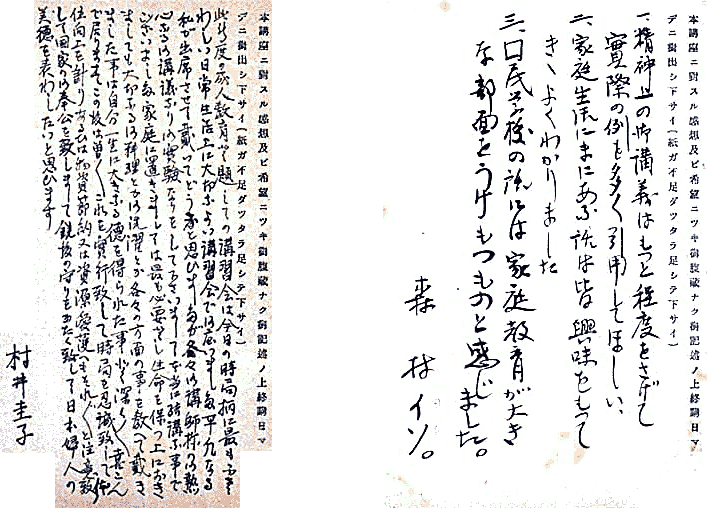 本講座ニ対スル感想及ビ希望ニツキ御腹蔵ナク御記述ノ上終講日マ
デニ御出シ下サイ(紙ガ不足ダツタラ足シテ下サイ)
一、精神上の御講義はもつと程度をさげて
実際の例を多く引用してほしい、
二、家庭生活にまにあふ話は皆興味をもつて
きゝよくわかりました
三、口民学校の話には家庭教育が大き
な部面をうけもつものと感じました。
森林イソ。
本講座ニ対スル感想及ビ希望ニツキ御腹蔵ナク御記述ノ上終講日マ
デニ御出シ下サイ(紙ガ不足ダツタラ足シテ下サイ)
此の度の成人教育の題しての講習会は今日の時局柄に最もふさ
わしい日常生活上に大切な講習会で
私が出席させて戴いてどうかと思ひますが各々の講師様の熱
心なる講議ぶりの実験などをして下さいまして本当に結構な事で
ございました家庭に置きましては最も必要とし生命を保つ上におき
ましても大切なる料理とか洗濯とか各々の方面の事を教へて戴き
ました事は自分一生に大きなる徳を得られた事と深く喜こん
で居ります、この後は尚これを実行致して時局を認識致して
位向上を計りあるひは物資節約又は資源愛護
して国家の奉公を致しまして銃後の守りをかたく致して日本婦人の
美徳を表わしたいと思ひます
村井圭子